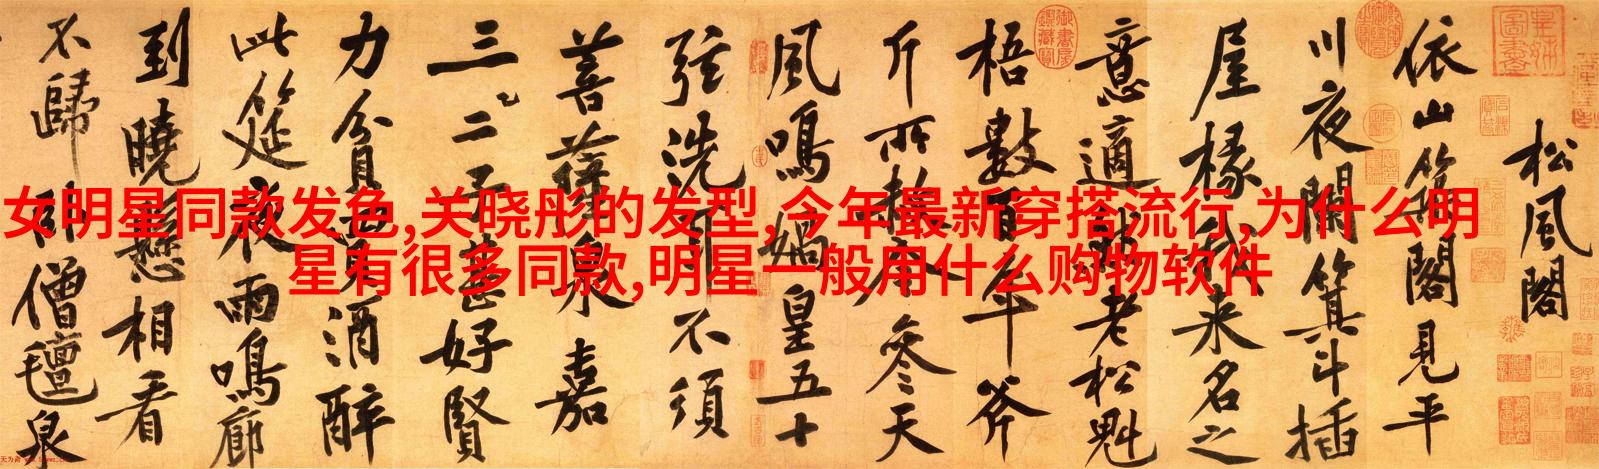 女明星同款发色,关晓彤的发型,今年最新穿搭流行,为什么明
星有很多同款,明星一般用什么购物软件
松風閣
依山築閣見平
川夜闌箕斗插
屋椽我來名之
意適然老松魁
梧數百年斧
斤所赦今參天
風鳴媧皇五十
弦洗耳不須
菩薩泉嘉
三二子甚好賢
力貧買酒醉
此筵夜雨鳴廊
到曉懸相看
不歸卧僧氈泉